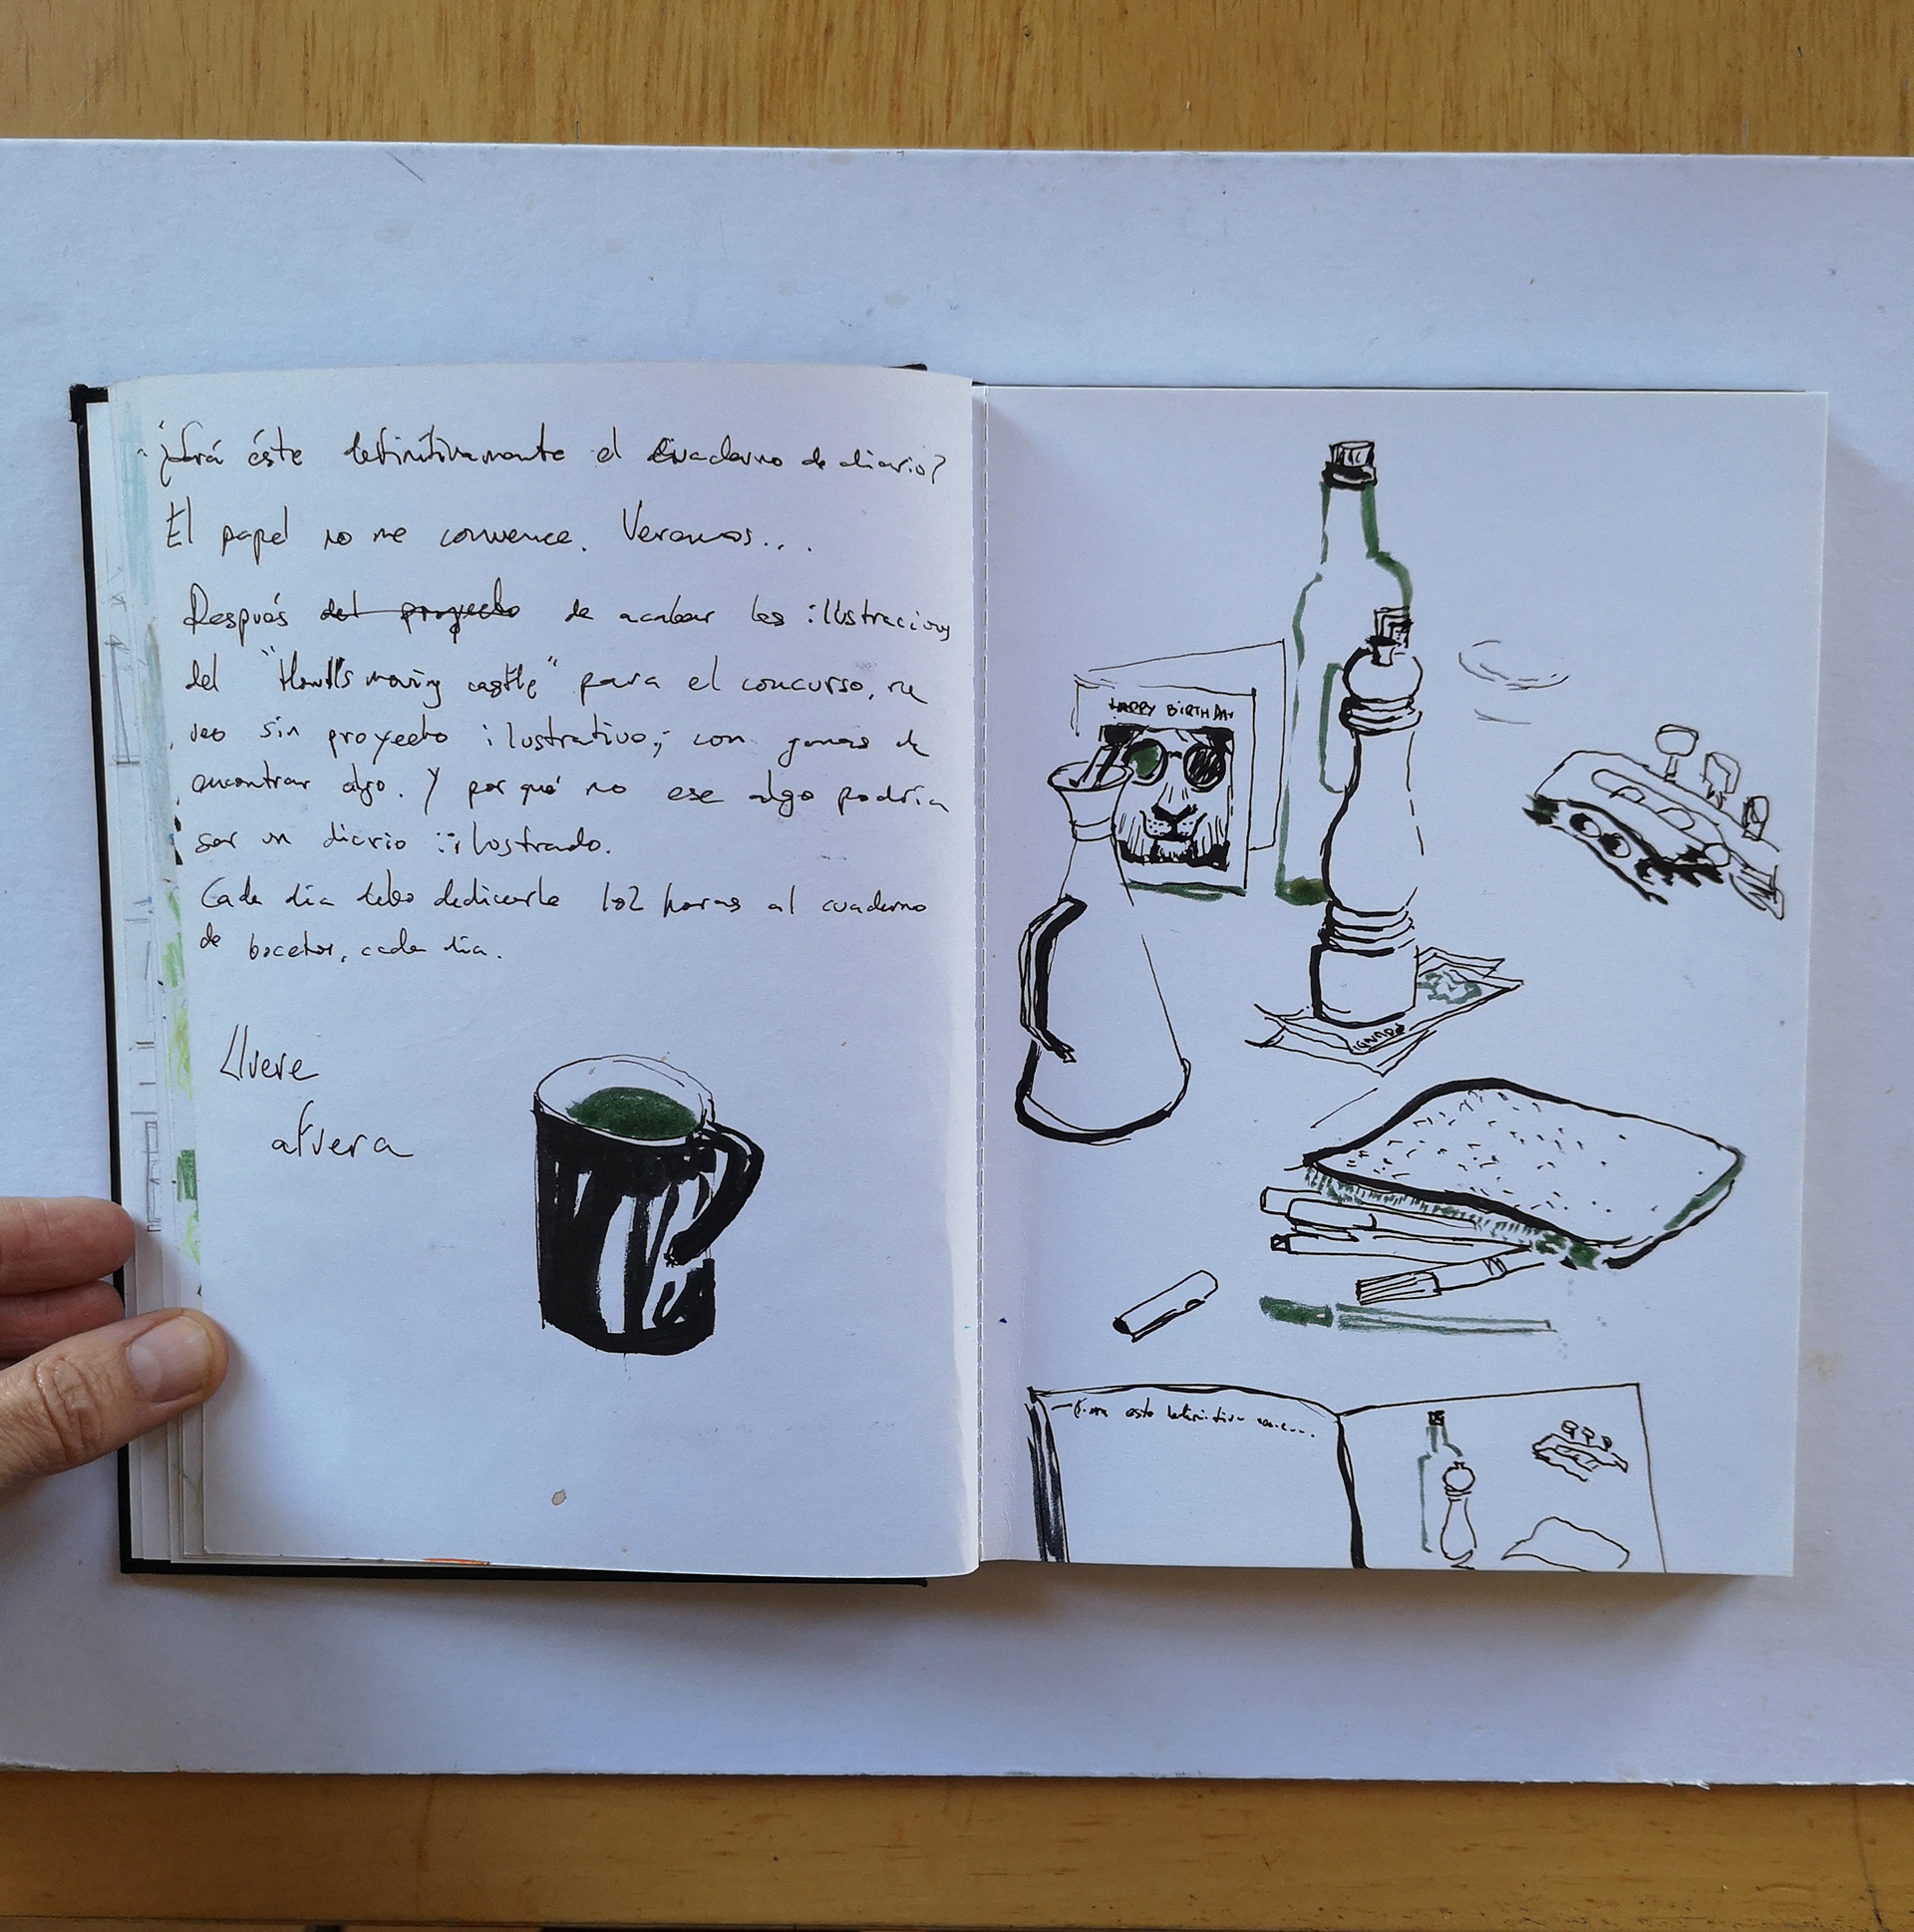 ¿Será éste definitivamente el cuaderno de diario?
El papel no me convence. Veramos...
Después del proyecto de acabar las ilustraciones
del "Howl's moving castle" para el concurso, me
veo sin proyecto ilustrativo; con ganas de
encontrar algo. Y por qué no ese algo podría
ser un diario ilustrado.
Cada día debo dedicarle 1o2 horas al cuaderno
de bocetos, cada día.
Llueve
afuera
HAPPY BIRTHDAY